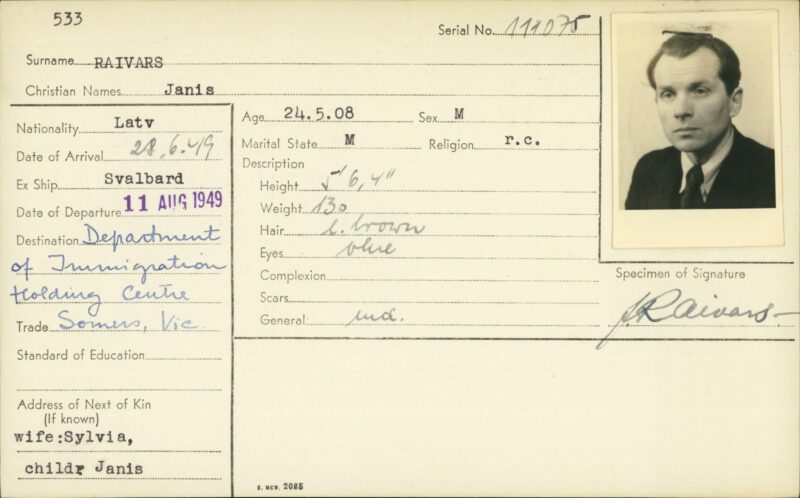 533
Serial No. 111075
Surname RAIVARS
Christian Names Janis
Nationality Latv
Date of Arrival 28.6.49
Ex Ship Svalbard
Date of Departure 11 AUG 1949
Destination Department
of Immigration
Holding Centre
Trade Somers, Vic
Standard of Education
Address of Next of Kin
(If known)
wife:Sylvia,
child: Janis
Age 24.5.08 Sex M
Marital State M Religion r.c.
Description
Height 5' 6,4"
Weight 130
Hair l. brown
Eyes blue
Complexion
Scars
General med.
Specimen of Signature
J Raivars
S. MED. 2085